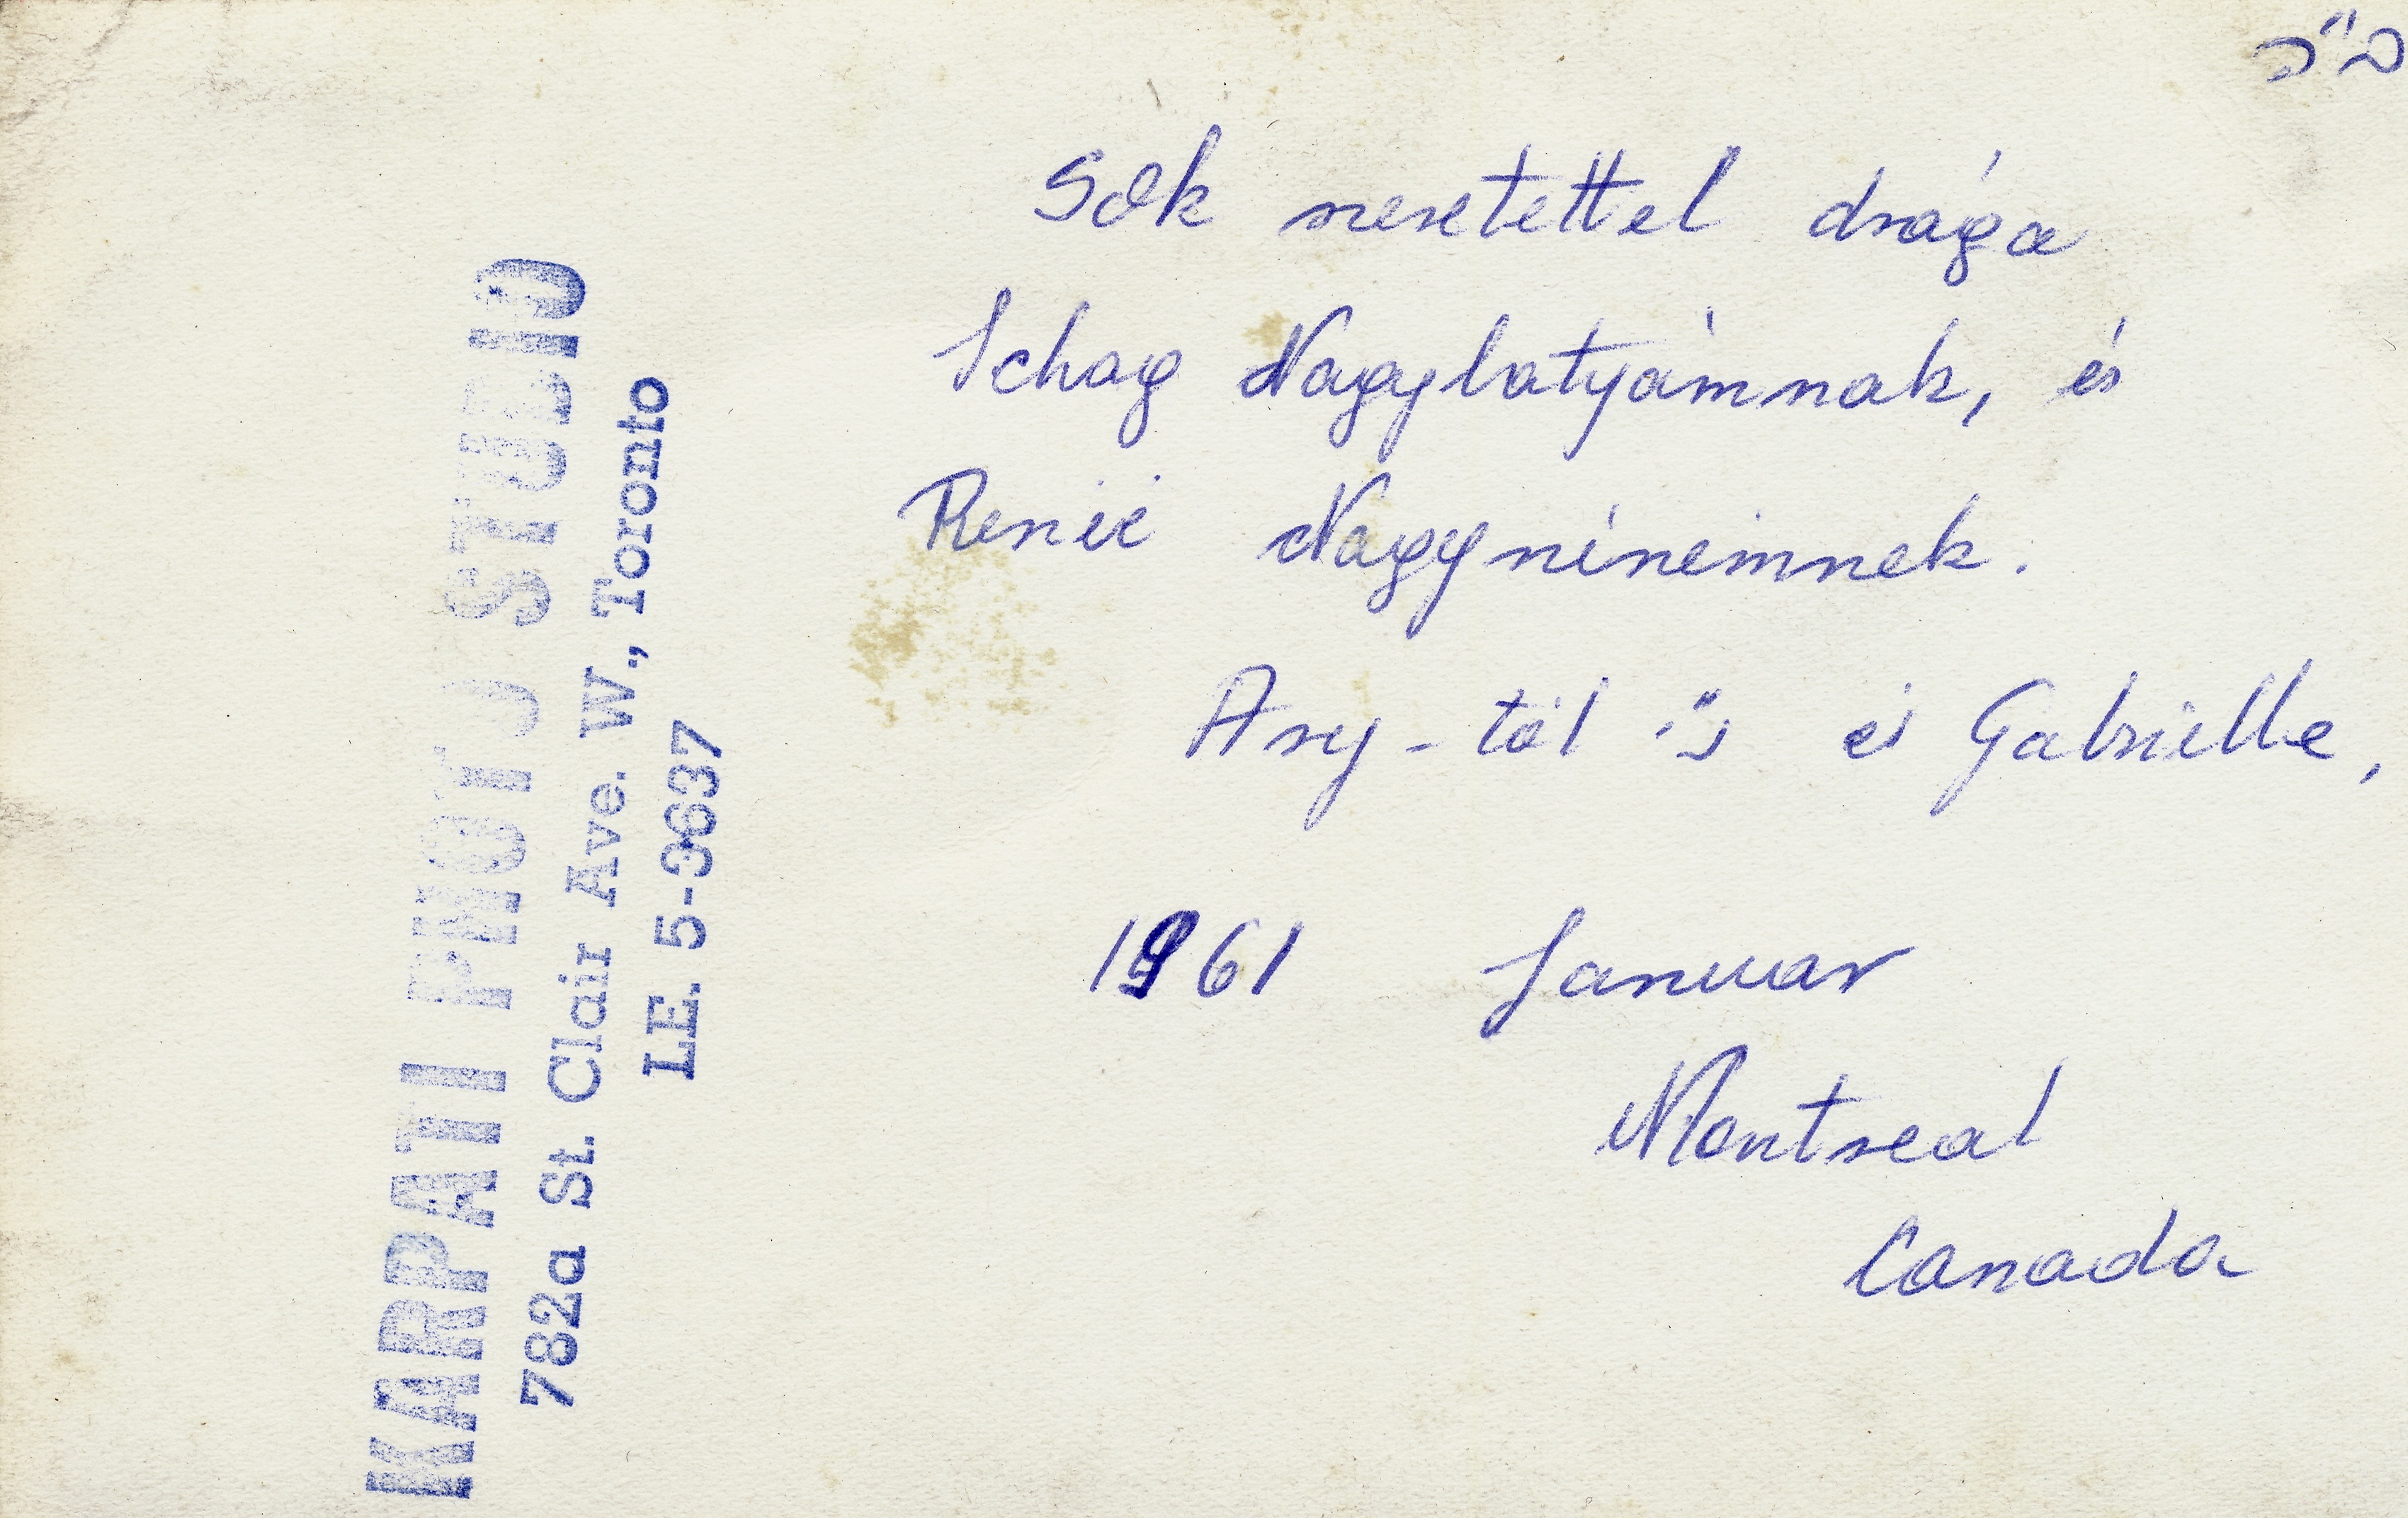 ב"ה
Sok szeretettel drága
Ichag Nagybatyámnak, és
Renéé Nagynénémnek.
Ary-tól נ"י és Gabrielle,
1961 Januar
Montreal
Canada
KARPATI PHOTO STUDIO
782a St. Clair Ave. W., Toronto
LE. 5-3637